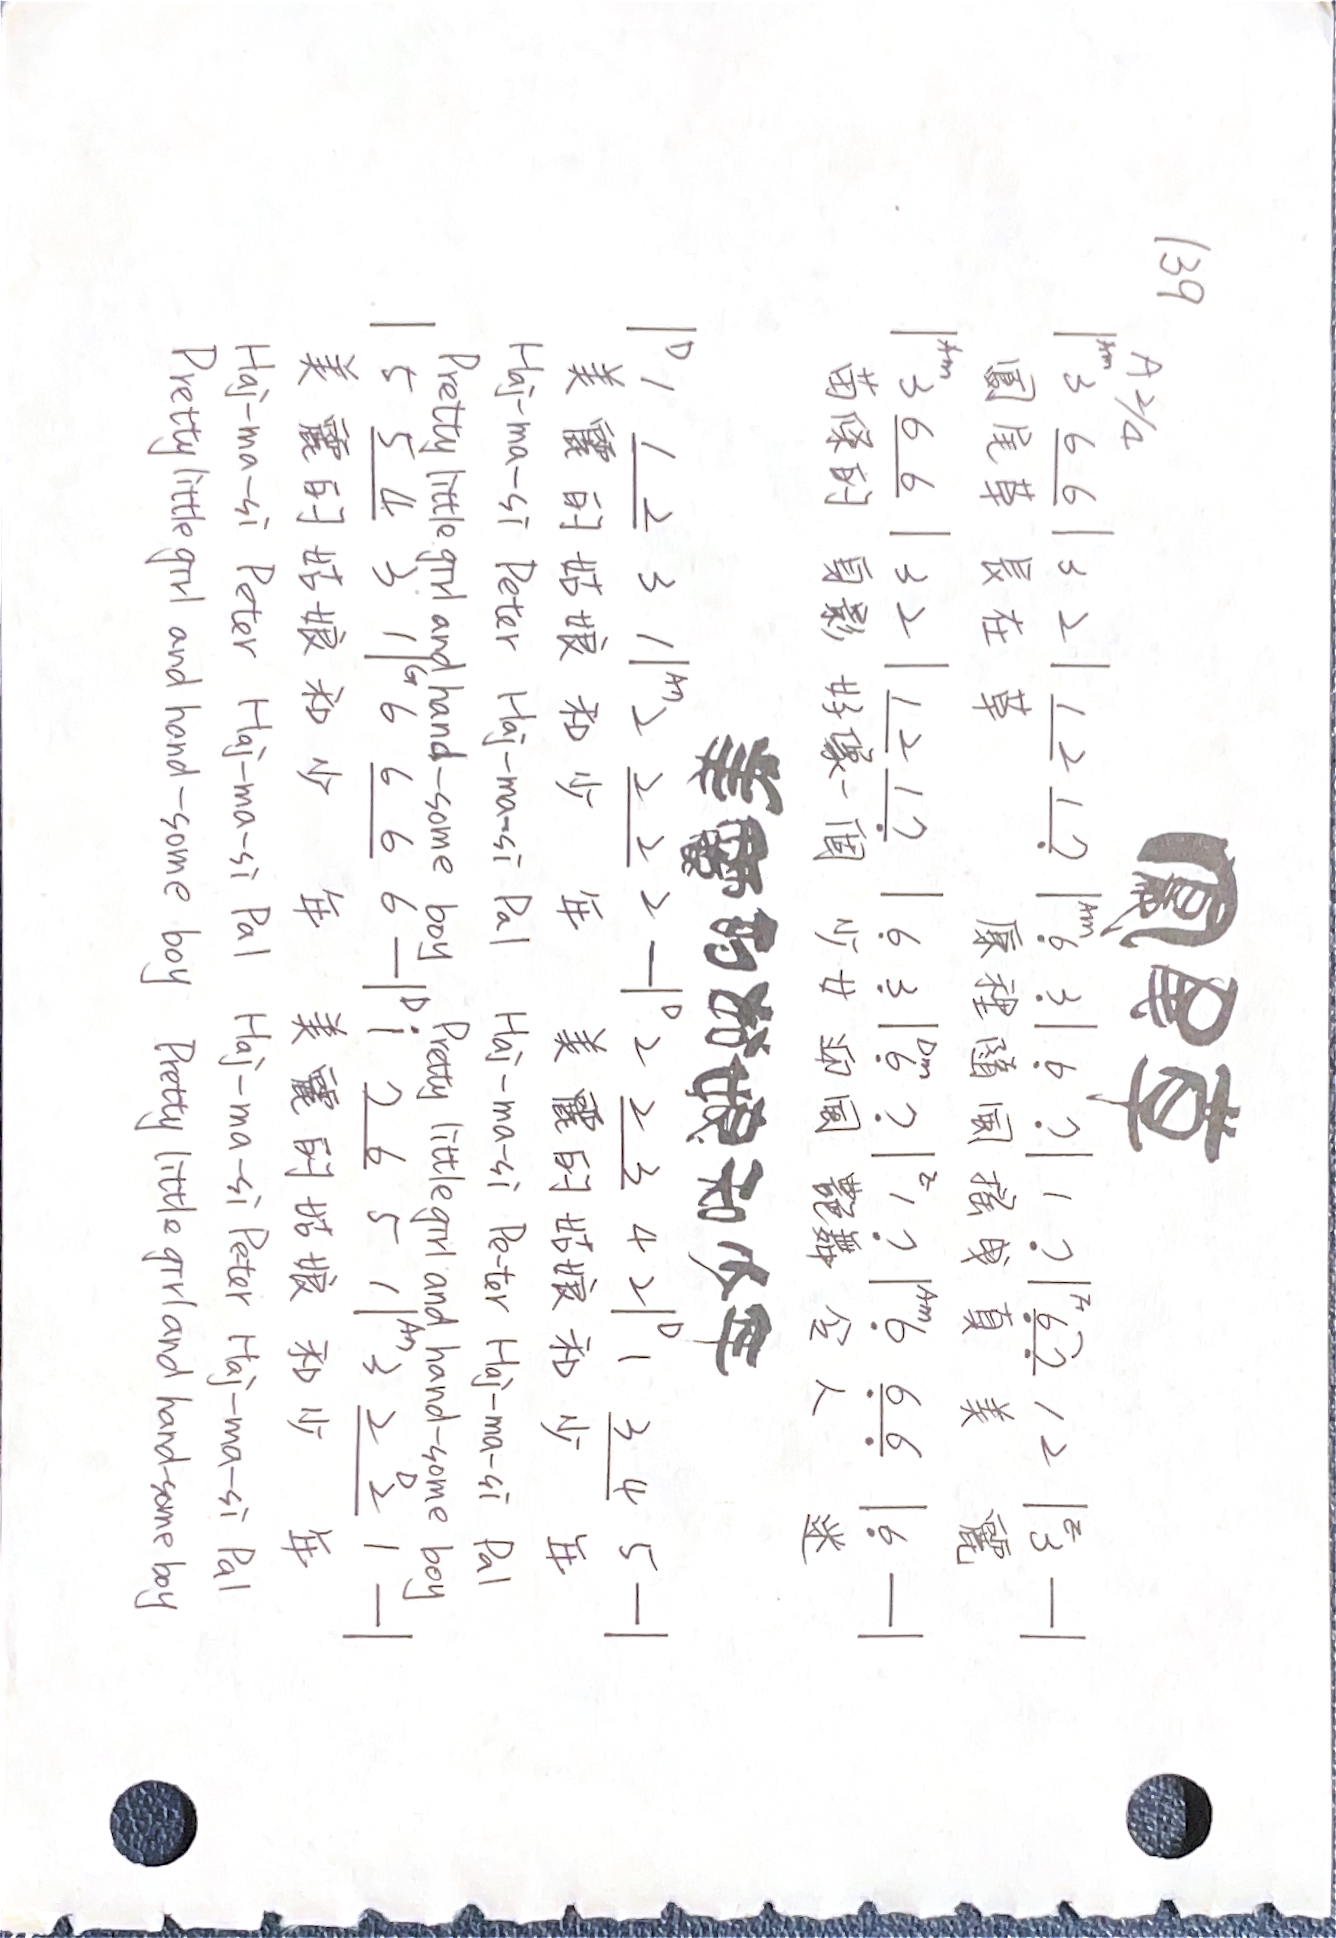 139
鳳尾草
A 2/4
|Am 3 6 6 | 3 2 | 1 2 1 7 |Am 6 3 | 6 7 | 1 7 |F 6 7 1 2 |E 3 — |
鳳尾草 長在 草 原裡隨風搖曳真 美 麗
|Am 3 6 6 | 3 2 | 1 2 1 7 | 6 3 |Dm 6 7 |E 1 7 |Am 6 6 6 | 6 — |
苗條的 身影 好像一個 少女迎風艷舞 令人 迷
美麗的姑娘和少年
|D 1 1 2 3 1 |A7 2 2 2 2 — |D 2 2 3 4 2 |D 1 3 4 5 — |
美麗的姑娘和少 年 美麗的姑娘和少 年
Haj-ma-si Peter Haj-ma-si Pal Haj-ma-si Pe-ter Haj-ma-si Pal
Pretty little girl and hand-some boy Pretty little girl and hand-some boy
| 5 5 4 3 1 |G 6 6 6 6 — |D i 7 6 5 1 |A7 3 2 D 2 1 — |
美麗的姑娘和少 年 美麗的姑娘和少 年
Haj-ma-si Peter Haj-ma-si Pal Haj-ma-si Pe-ter Haj-ma-si Pal
Pretty little girl and hand-some boy Pretty little girl and hand-some boy